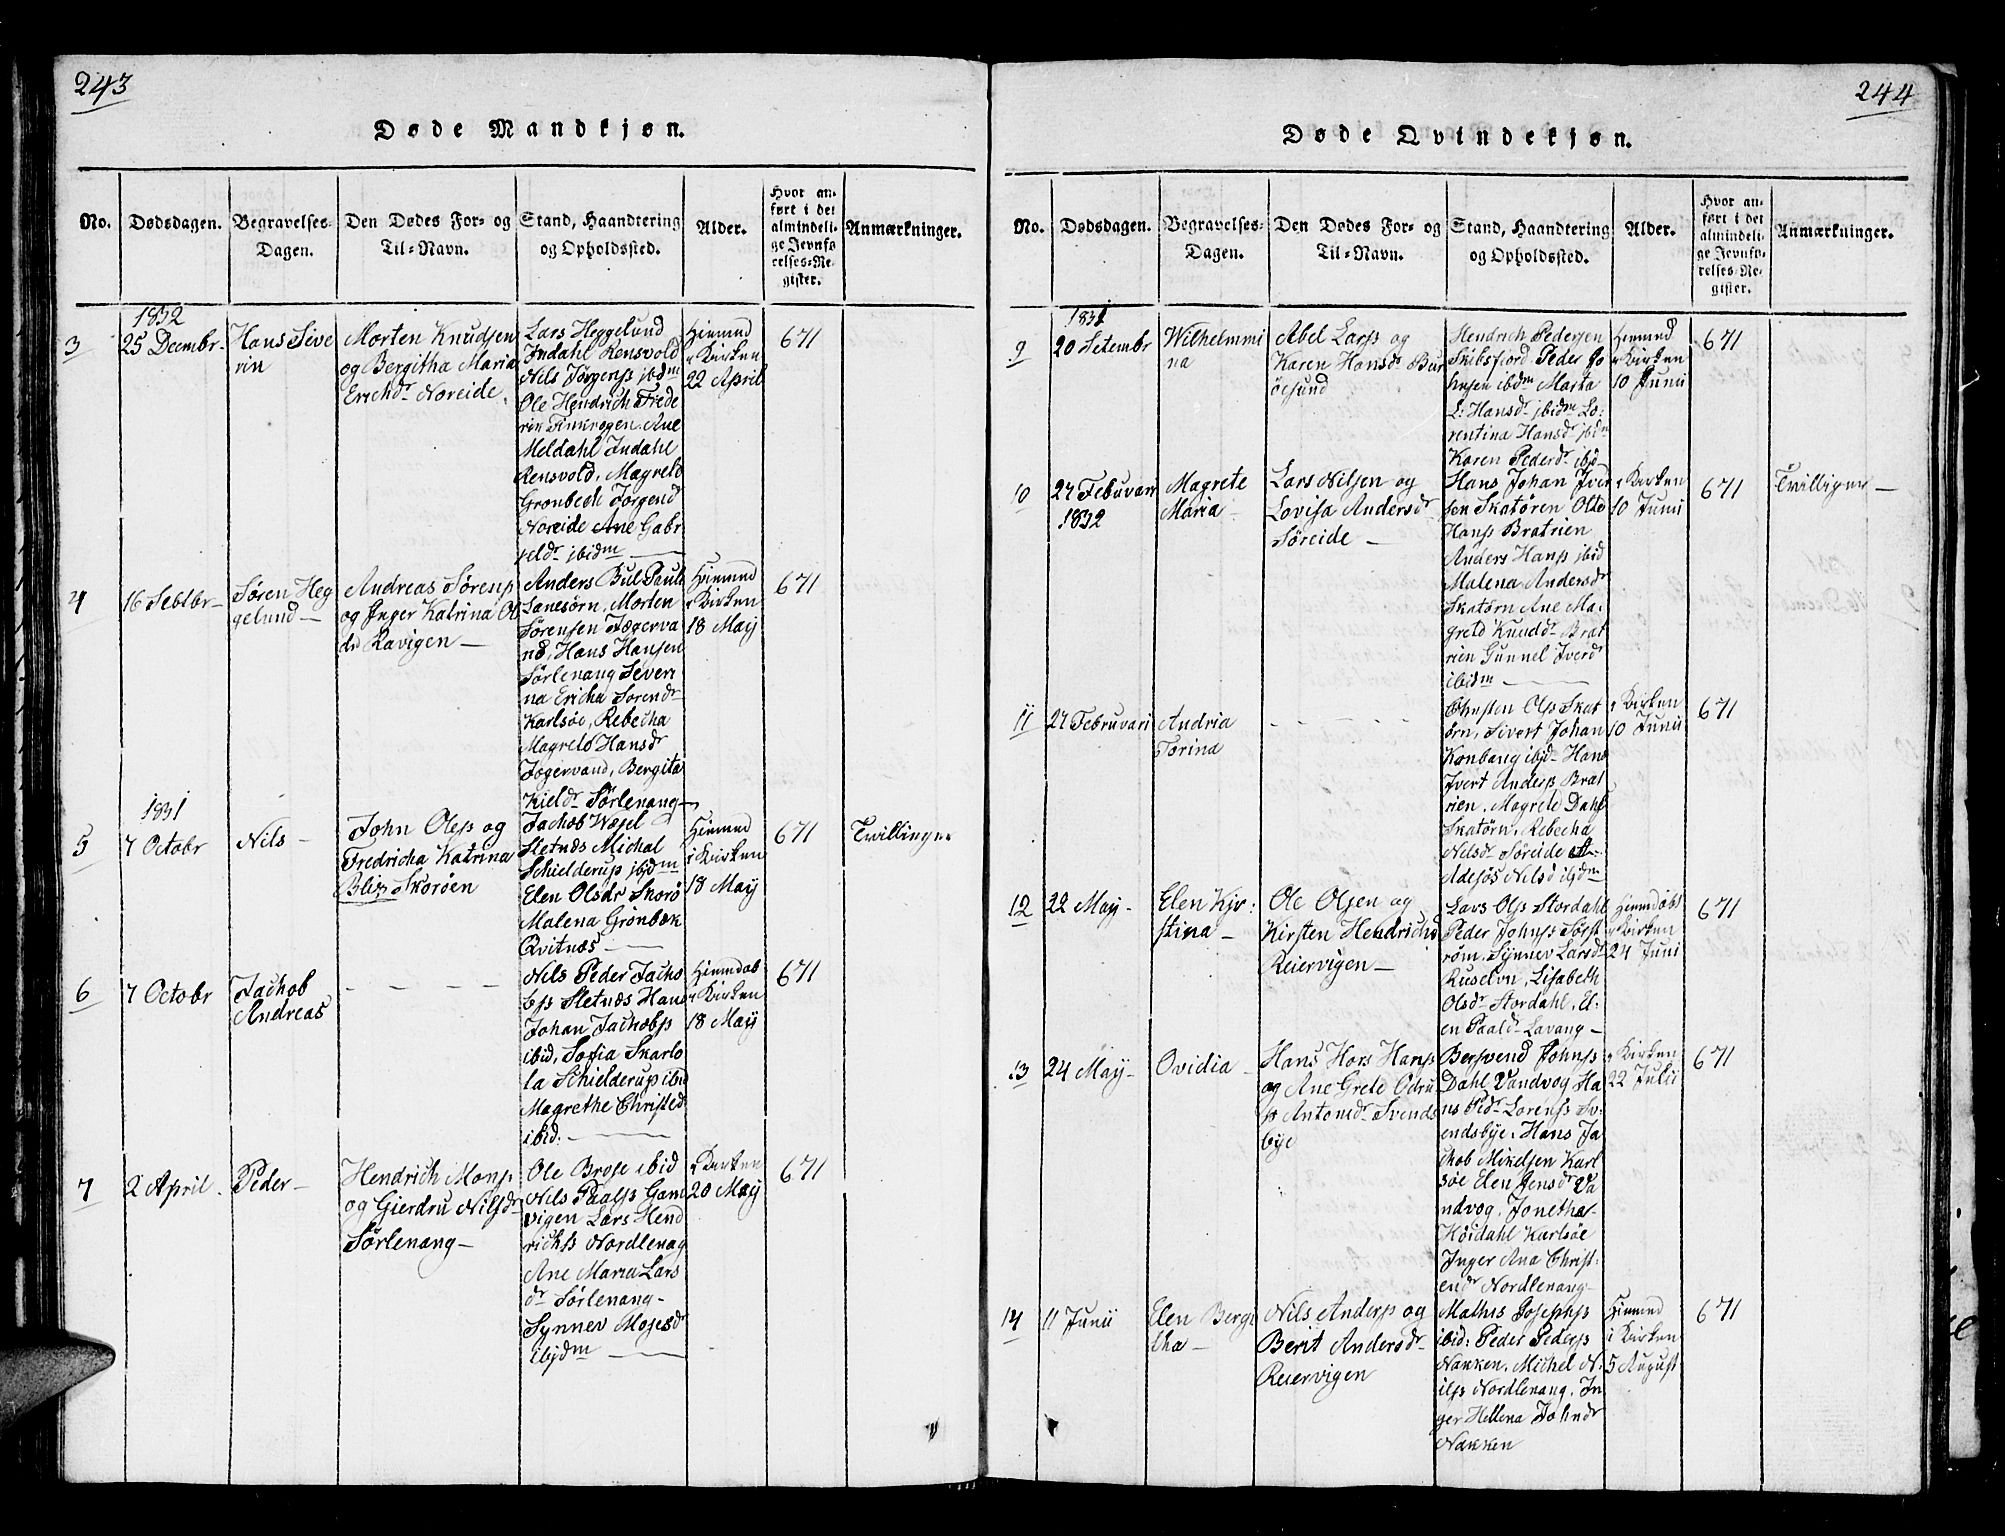 243
Døde Mandkjøn.
No.
Dødsdagen.
Begravelses-
Dagen.
Den Dødes For- og
Til-Navn.
Stand, Haandtering
og Opholdssted.
Alder.
Hvor an-
ført i det
almindeli-
ge Jevnfø-
relses-Re-
gister.
Anmærkninger.
3
1832
25 Decembr
Hans Seve
rin
Morten Knudsen
og Bergitha Maria
Erichdr Noreide
Lars Heggelund
Indahl Rensvold
Nils Jørgens jbidm
Ole Hendrich Frede
rik Finkrogen Ane
Meldahl Indahl
Rensvold, Magreld
Grønbech Jørgend
Noreide Ane Gabr
jeldr jbidm
Hiemmd
i Kirken
22 April
671
4
16 Sebtbr
Søren Heg
gelund
Andreas Sørens
og Inger Katrina Ol
dr Ravigen
Anders Bul Pauls
Lanesørn, Morten
Sørensen Fægerva
nd, Hans Hansen
Sørlenang Severi
na Ericha Sorendr
Karlsøe, Rebecha
Magreld Hansdr
Fægervand, Bergita
Kieldr Sørlenang
Hiemmd
i Kirken
18 May
671
5
1831
7 Octobr
Nils
John Oles og
Fredricha Katrina
Blix Skorøen
Jachob Wæsel
Sletnæs Michal
Schielderup jbjdm
Elen Olsdr Skorø
Malena Grønbæk
Qvitnæs
Hiemmd
i Kirken
18 May
671
Tvillinger
6
7 Octobr
Jachob
Andreas
Nils Peder Jacho
bs Sletnæs Hans
Johan Jachobs
ibid, Sofia Skarlo
la Schielderup ibid
Magrethe Christed
ibid.
Hiemdøb
i Kirken
18 May
671
7
2 April
Peder
Hendrich Mons
og Gierdru Nilsdr
Sørlenang
Ole Brose ibid
Nils Paals Gam
vigen Lars Hend
richs Nordlenag
Ane Maria Lars
dr Sørlenang
Synnev Mosesdr
Ibjdm
i Kirken
20 May
671
244
Døde Qvindekjøn.
No.
Dødsdagen.
Begravelses-
Dagen.
Den Dødes For- og
Til-Navn.
Stand, Haandtering
og Opholdssted.
Alder.
Hvor an-
ført i det
almindeli-
ge Jevnfø-
relses-Re-
gister.
Anmærkninger.
9
1831
20 Setembr
Wilhelmmi
na
Abel Lars og
Karen Hansdr Bur
øesund
Hendrich Pedersen
Skibsfjord Peder Jo
hnsen ibdm Marta
L: Hansdr jbidm Lo:
rentina Hansdr jbdm
Karen Pederdr ibjd
Hiemmd
i Kirken
10 Junii
671
10
27 Febuvari
1832
Magrete
Maria
Lars Nilsen og
Lovisa Andersdr
Søreide
Hans Johan Iver
sen Skatøren Olde
Hans Bratrien
Anders Hans jbid
Malena Andersdr
Skatørn Ane Ma:
greld Knuddr Brat
rien Gunnel Iverdr
ibidm
i Kirken
10 Junii
671
Tvilliger
11
27 Februvari
Andria
Torina
Christen Ols Skat
ørn, Sivert Johan
Konbang ibjd Hans
Ivert Anders Brat
rien, Magrete Dahl
Skatørn, Rebecha
Nilsdr Søreide
Adejøs Nilsd ibjdm
i Kirken
10 Junii
671
12
22 May
Elen Kjr:
stina
Ole Olsen og
Kirsten Hendrichd
Reiervigen
Lars Ols Stordahl
Peder Johns Sørst
røm, Synnev Larsdr
Ruselvn, Lisabeth
Olsdr Stordahl, El:
en Paaldr Lavang
Hiemdøbt
i Kirken
24 Juni
671
13
24 May
Ovidia
Hans Hors Hans
og Ane Greld Odru
p Antonidr Svends
bye
Bersvend Johns
Dahl, Vandvog Ha
ns Pedr Lorens Sv:
endsbye, Hans Ja
chob Mikelsen Karl
søe Elen Jensdr Va
ndvog, Jonetha
Høidahl Karlsøe
Inger Ana Christ:
endr Nordlenang
i Kirken
22 Julii
671
14
11 Junii
Elen Bergi
tha
Nils Anders og
Berit Andersdr
Reiervigen
Mathis Josephs
ibid: Peder Peders
Nakken, Michel N:
ils Nordlenang, In
ger Hellena Johndr
Nakken
Hiemmd
i Kirken
5 August
671